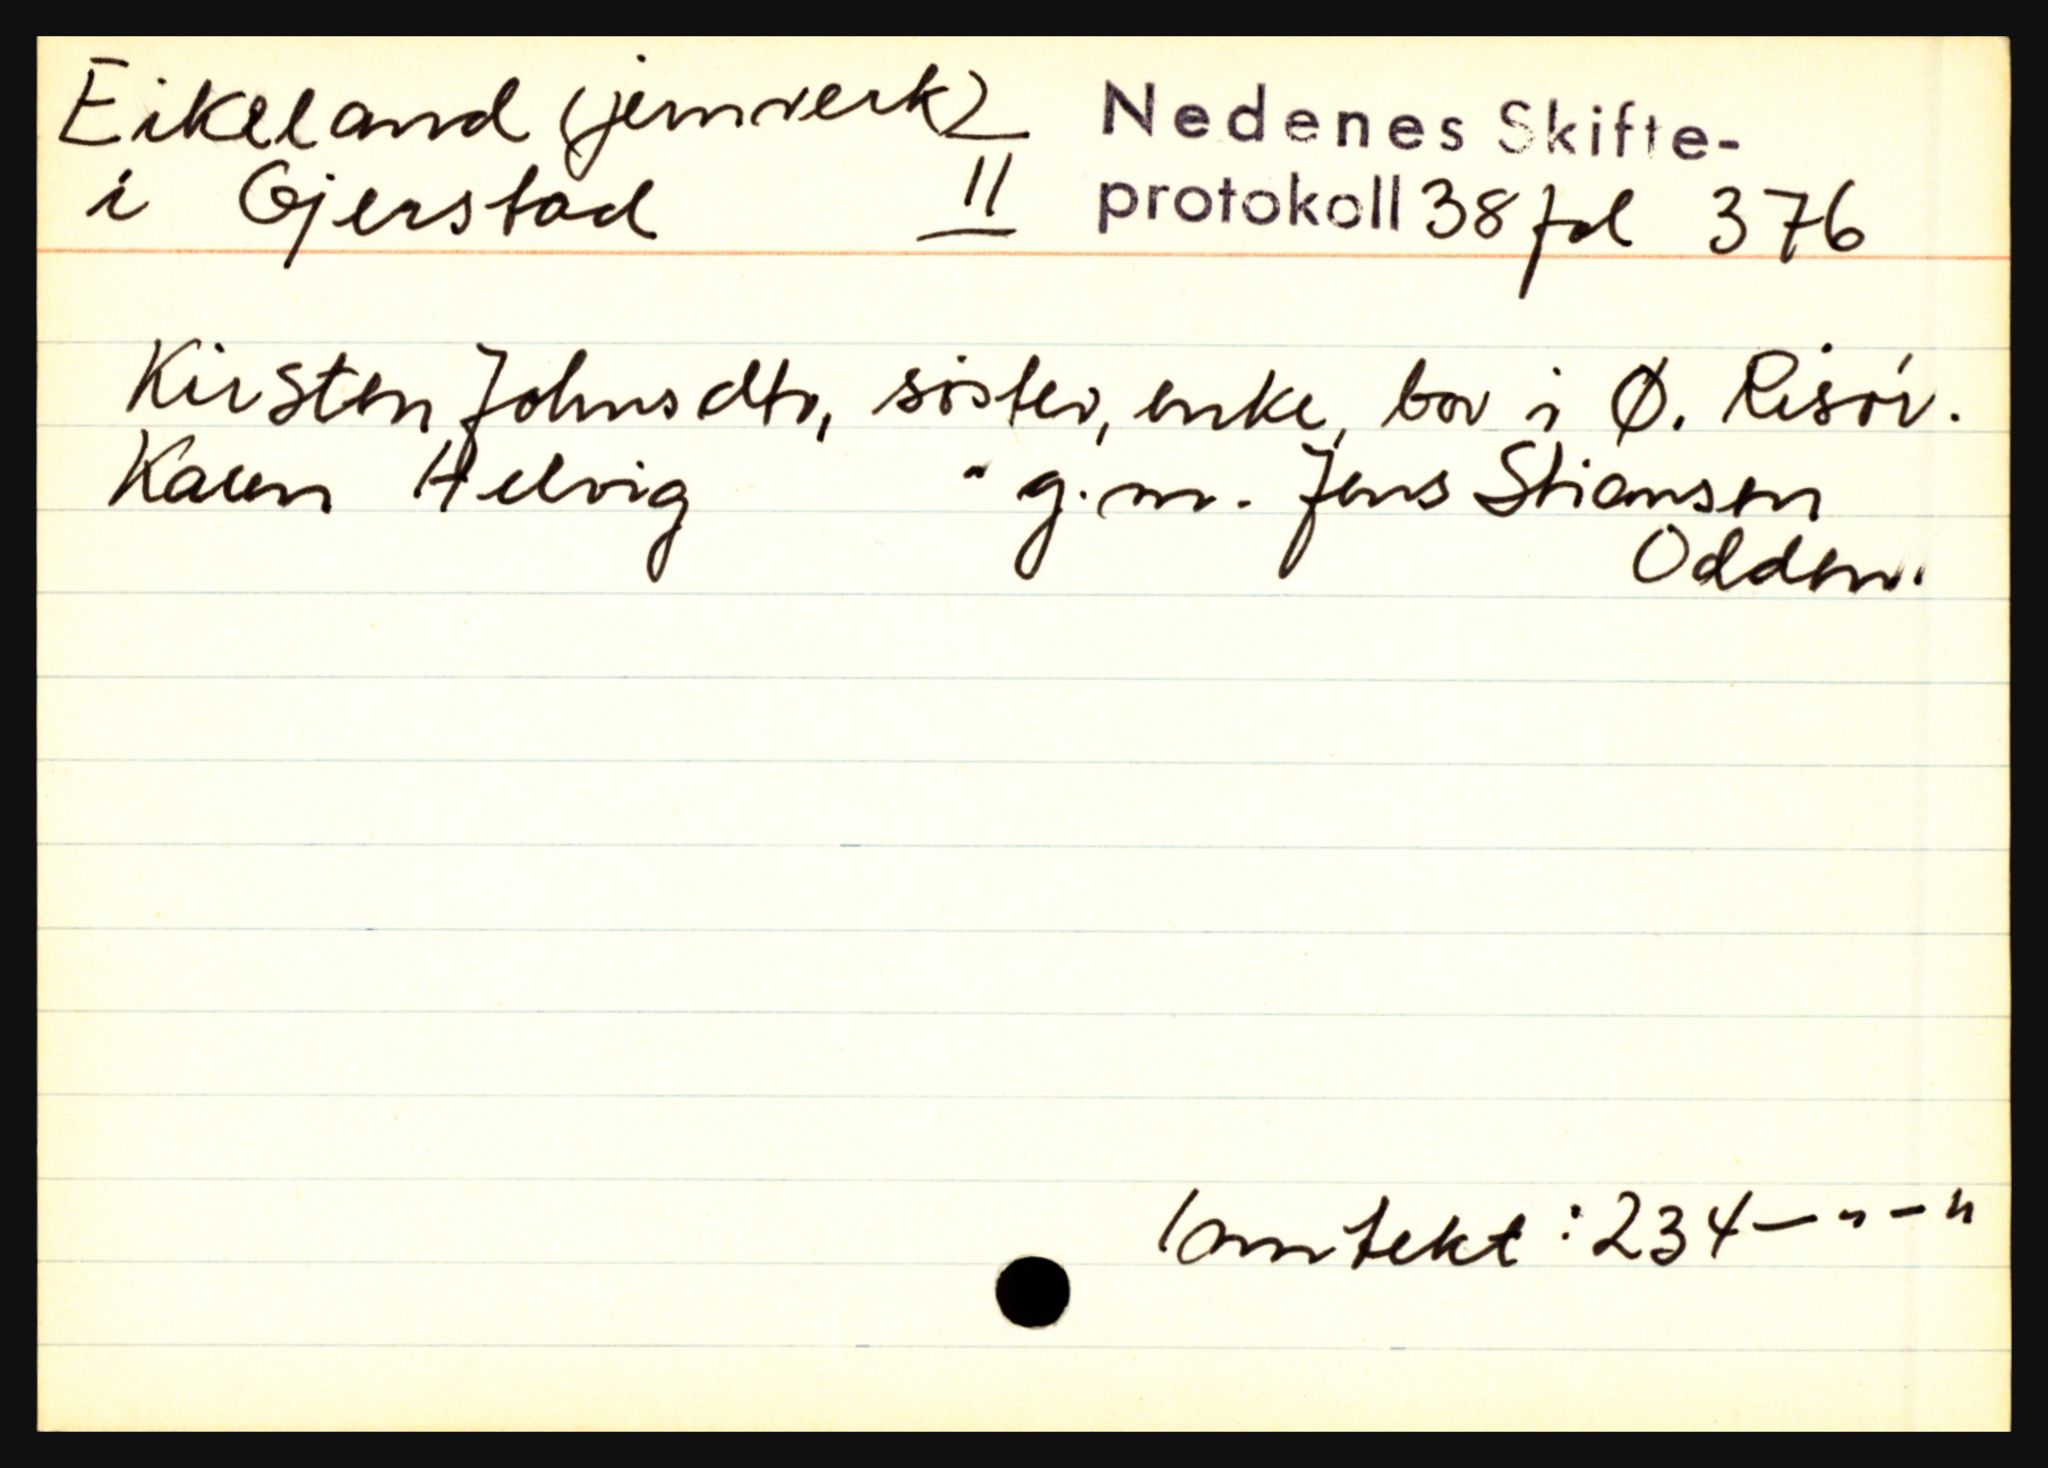 Eikeland (jernverk) Nedenes Skifte-
i Gjerstad II protokoll 38 fol 376
Kirsten Johnsdtr, søster, enke, bor i Ø. Risør.
Karen Helvig " g.m. Jens Stiansen
Odden.
Inntekt: 234 — " — "